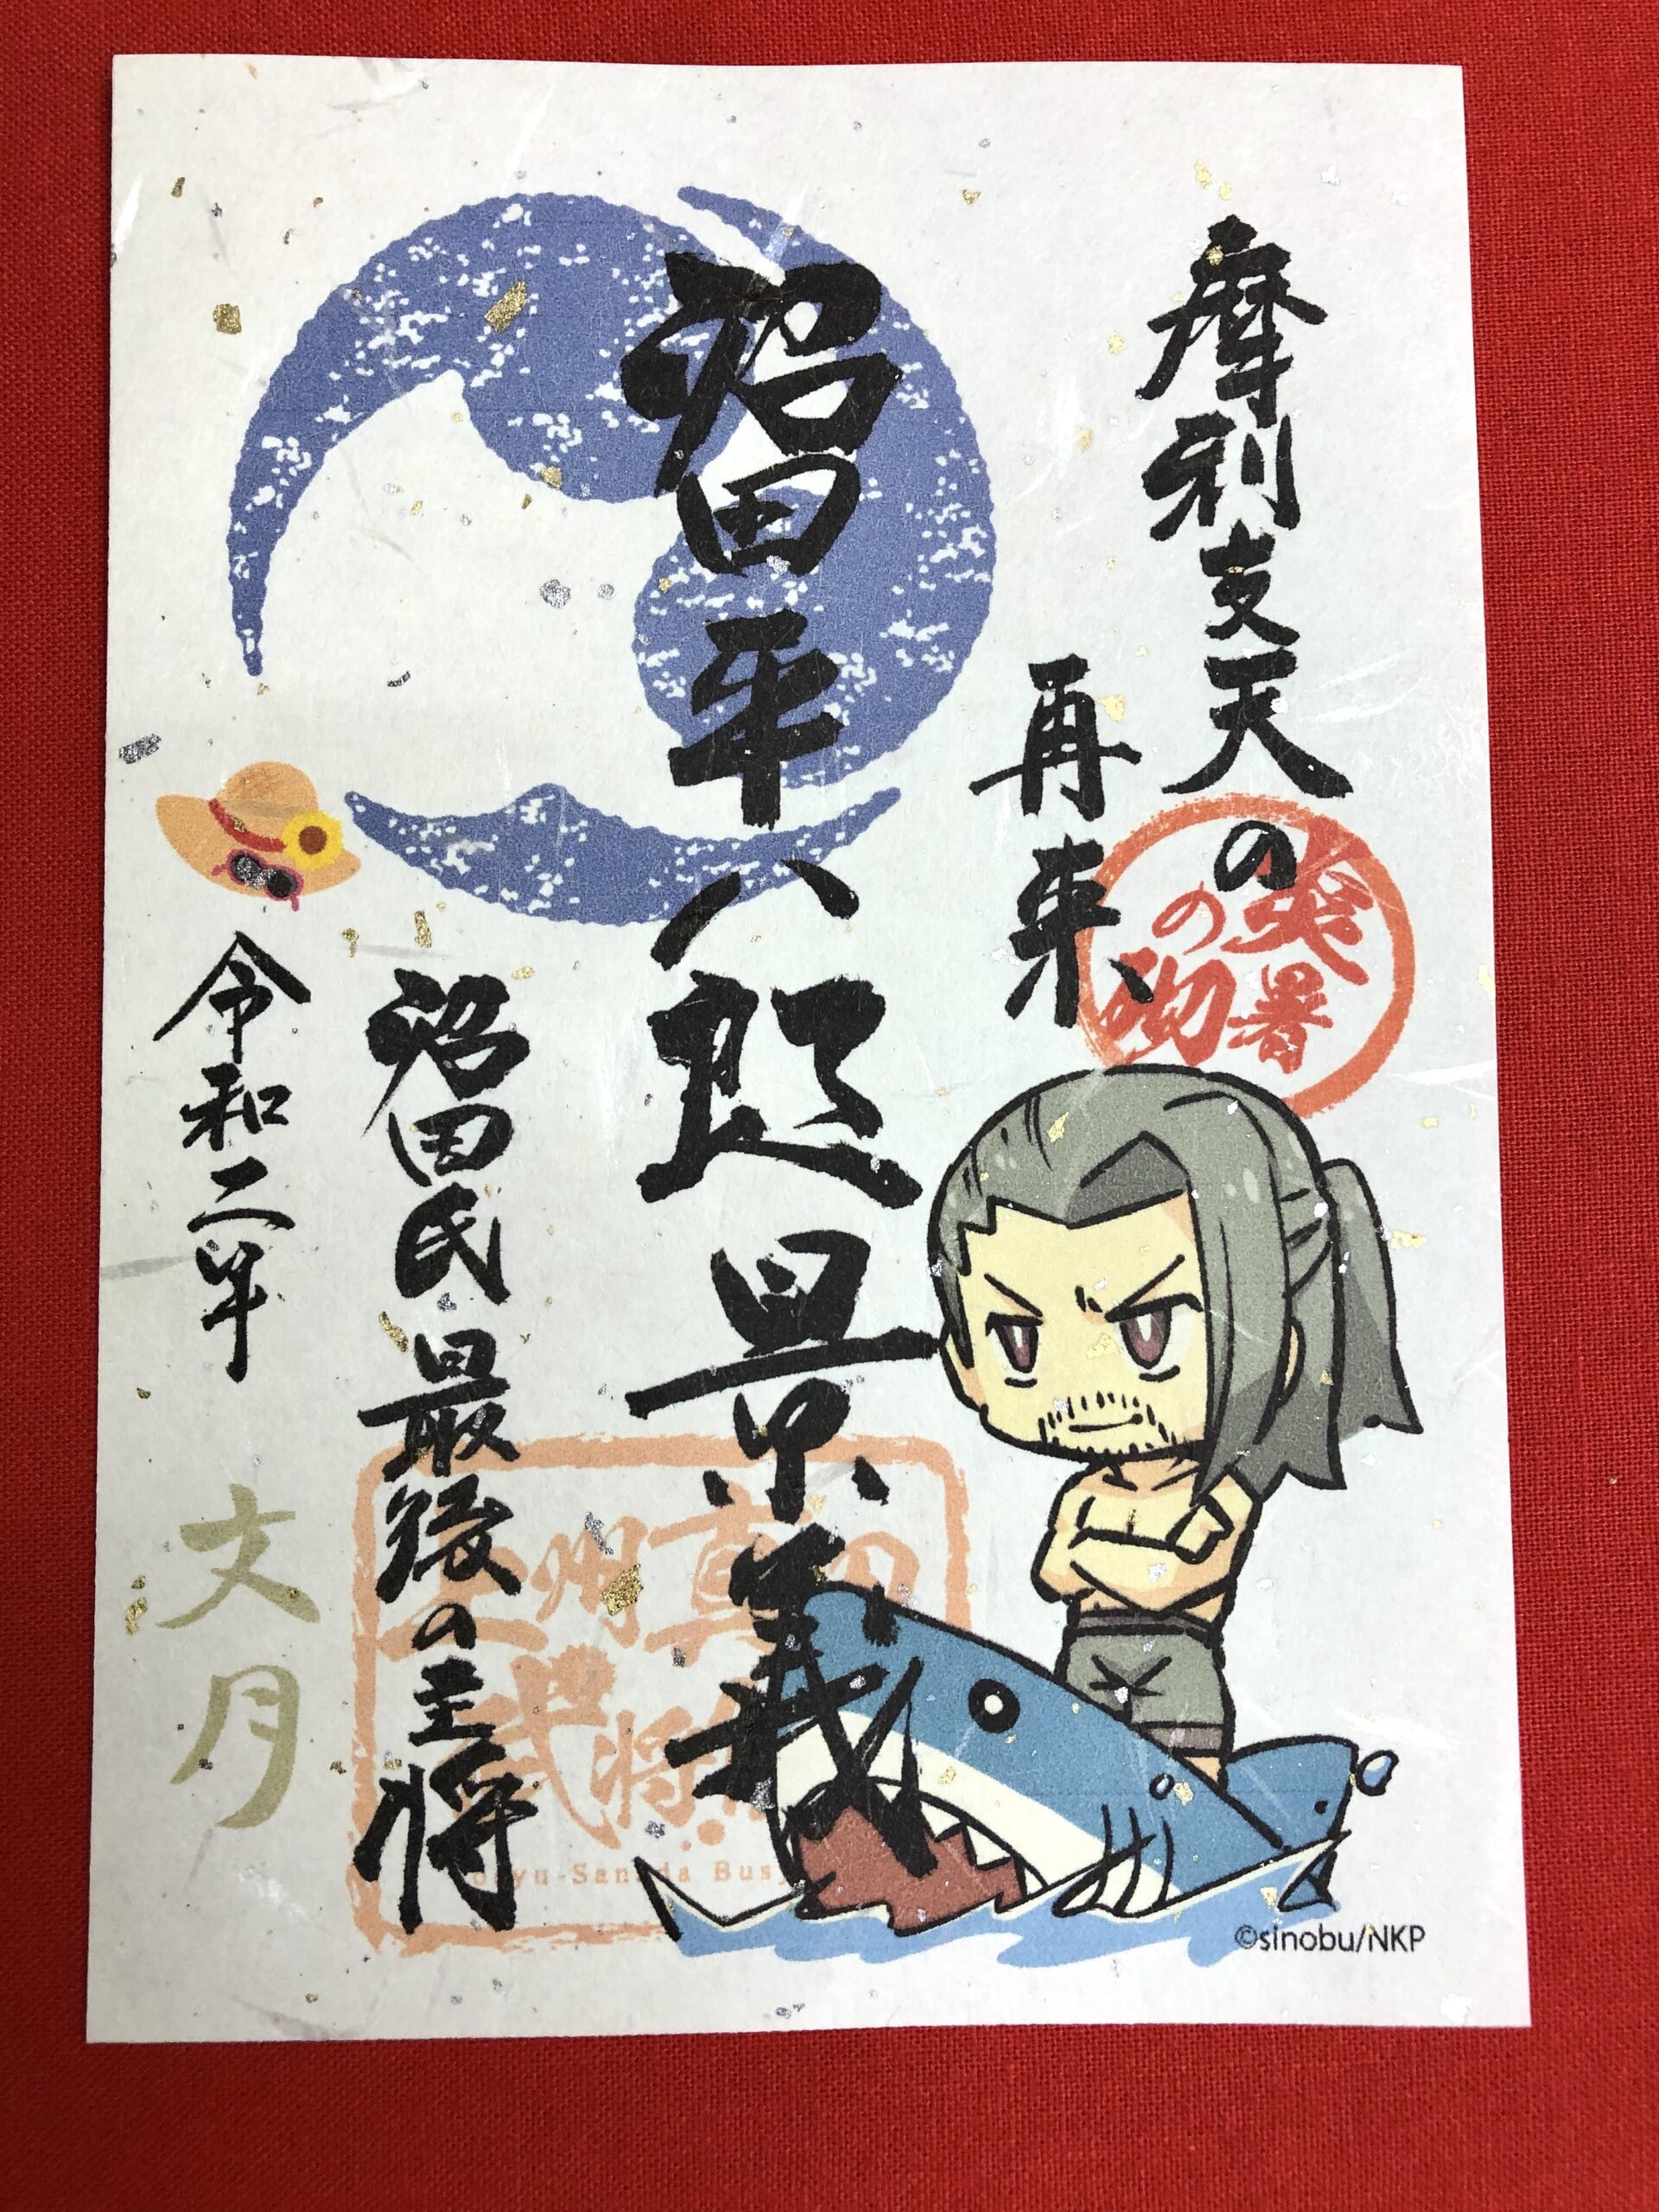 摩利支天の
再来、
炎暑
の砌
沼田平八郎景義
沼田氏最後の主将
令和二年
文月
上州真田
武将
©sinobu/NKP